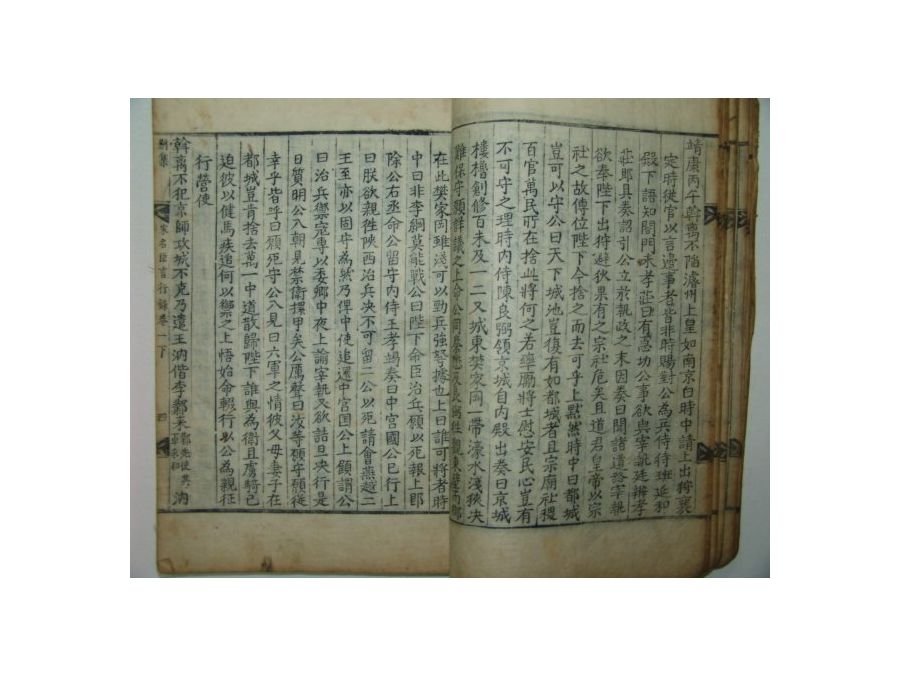 靖康丙午斡离不陷濬州上皇如南京白時中請上出狩襄
定時從官以言邊事者皆非時賜對公為兵侍待班延和
殿下語知閤門朱孝莊曰有急切公事欲與宰執廷辨孝
莊即具奏詔引公立於執政之末因奏曰聞諸道路宰執
欲奉陛下出狩避狄果有之宗社危矣且道君皇帝以宗
社之故傳位陛下今捨之而去可乎上黙然時中曰都城
豈可以守公曰天下城池豈復有如都城者且宗廟社稷
百官萬民所在捨此將何之若率勵將士慰安民心豈有
不可守之理時内侍陳良弼領京城自内殿出奏曰京城
樓櫓創修百未及一二又城東樊家岡一帶濠水淺狹决
難保守願詳議之上命公同
在此樊家岡雖淺可以勁兵強弩據也上曰誰可將者時
中曰非李綱莫能戰公曰陛下命臣治兵願以死報上即
除公右丞命公留守内侍王孝竭奏曰中宮國公已行上
曰朕欲親徃陜西治兵决不可留二公以死請會燕越二
王至亦以固守為然乃俾中使追還中宮国公上顧謂公
曰治兵禦寇專以委卿中夜上諭宰執又欲詰旦决行是
日質明公入朝見禁衛擐甲矣公厲聲曰汝等願守願從
幸乎皆呼曰願死守公入見曰六軍之情彼父母妻子在
都城豈肯捨去萬一中道散歸陛下誰與為衛且虜騎已
迫彼以健馬疾追何以禦之上悟始命輟行以公為親征
行營使
斡离不犯京師攻城不克乃遣王汭偕李鄴来鄴先使其軍求和汭
别集
宋名臣言行録卷一下
四